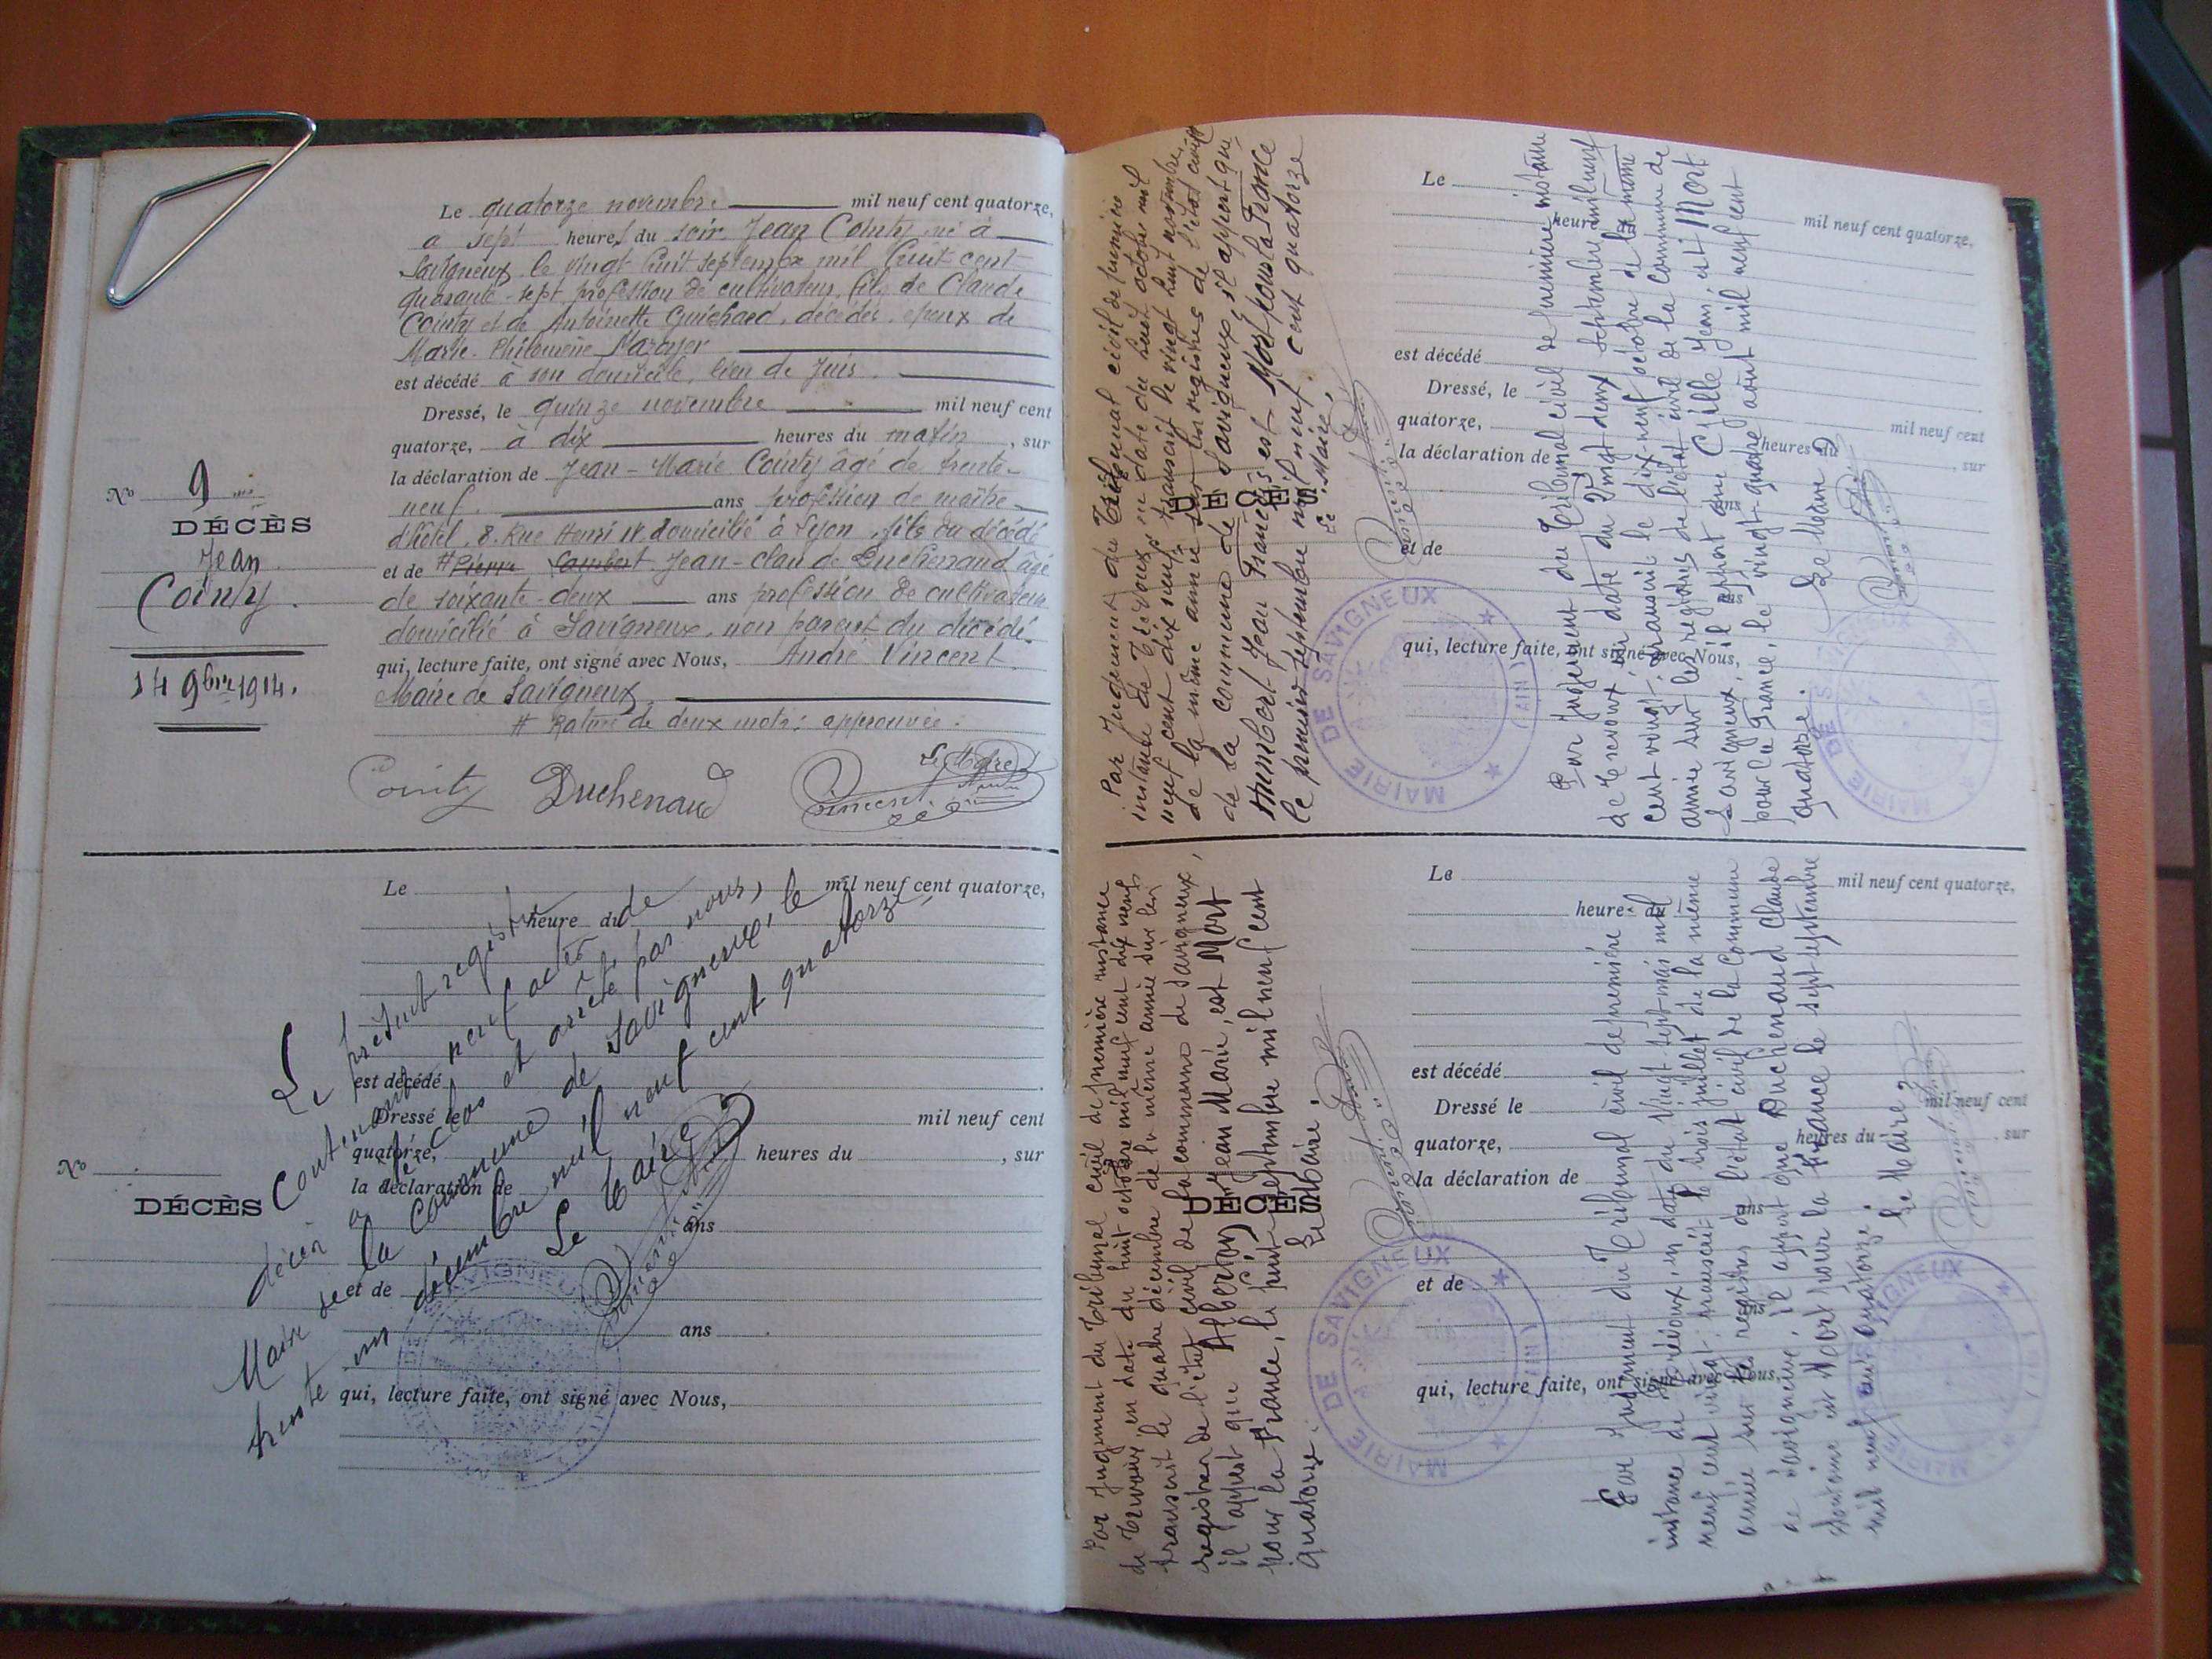 Le quatorze novembre mil neuf cent quatorze,
à sept heures du soir Jean Cointy né à
Savigneux le vingt huit septembre mil huit cent
quarante-sept profession de cultivateur, fils de Claude
Cointy et de Antoinette Guichard, décédés, époux de
Marie Philomène
est décédé à son domicile, lieu de Juis.
Dressé, le quinze novembre mil neuf cent
quatorze, à dix heures du matin, sur
la déclaration de Jean-Marie Cointy âgé de trente-
neuf ans profession de maître
d'hôtel, 8. Rue Henri IV domicilié à Lyon, fils du décédé
et de # Pierre Lambert Jean-Claude Duchenaud âgé
de soixante-deux ans profession de cultivateur
domicilié à Savigneux, non parent du décédé.
qui, lecture faite, ont signé avec Nous, André Vincent
Maire de Savigneux
# Rature de deux mots: approuvée.
Cointy Duchenaud Le Maire
Vincent
No 9
DÉCÈS
Jean
Cointy.
14 9bre 1914.
Le mil neuf cent quatorze,
heure du
est décédé
Dressé le mil neuf cent
quatorze, heures du , sur
la déclaration de
ans
et de
ans
qui, lecture faite, ont signé avec Nous,
No
DÉCÈS
Le présent registre de
Contenant neuf actes
décès a été clos et arrêté par nous,
Maire de la commune de Savigneux, le
trente un décembre mil neuf cent quatorze
Le Maire
Par Jugement du Tribunal civil de première
instance de Trévoux en date du huit octobre mil
neuf cent dix neuf, transcrit le vingt huit novembre
de la même année sur les registres de l'état civil
de la commune de Savigneux, il appert que
Humbert Jean François est Mort pour la France
le premier septembre mil neuf cent quatorze
Le Maire,
DÉCÈS
MAIRIE DE SAVIGNEUX (AIN)
Le mil neuf cent quatorze,
heure du
est décédé
Dressé, le mil neuf cent
quatorze, heures du , sur
la déclaration de
ans
et de
ans
qui, lecture faite, ont signé avec Nous,
Par Jugement du Tribunal civil de première instance
de Trévoux, en date du deux septembre mil neuf
cent vingt, transcrit le dix-neuf octobre de la même
année sur les registres de l'état civil de la commune de
Savigneux, il appert que Jean, est Mort
pour la France, le vingt-quatre août mil neuf cent
quatorze.
Le Maire
MAIRIE DE SAVIGNEUX (AIN)
Par Jugement du Tribunal civil de première instance
de Trévoux en date du huit octobre mil neuf cent dix neuf
transcrit le quatre décembre de la même année sur les
registres de l'état civil de la commune de Savigneux,
il appert que Jean Marie, est Mort
pour la France, le huit septembre mil neuf cent
quatorze.
Le Maire.
DÉCÈS
MAIRIE DE SAVIGNEUX (AIN)
Le mil neuf cent quatorze,
heure du
est décédé
Dressé le mil neuf cent
quatorze, heures du , sur
la déclaration de
ans
et de
ans
qui, lecture faite, ont signé avec Nous,
Par Jugement du Tribunal civil de première
instance de Trévoux, en date du vingt-sept mai mil
neuf cent vingt, transcrit le trois juillet de la même
année sur les registres de l'état civil de la commune
de Savigneux, il appert que Duchenaud Claude
est Mort pour la France le sept septembre
mil neuf cent quatorze.
Le Maire
MAIRIE DE SAVIGNEUX (AIN)